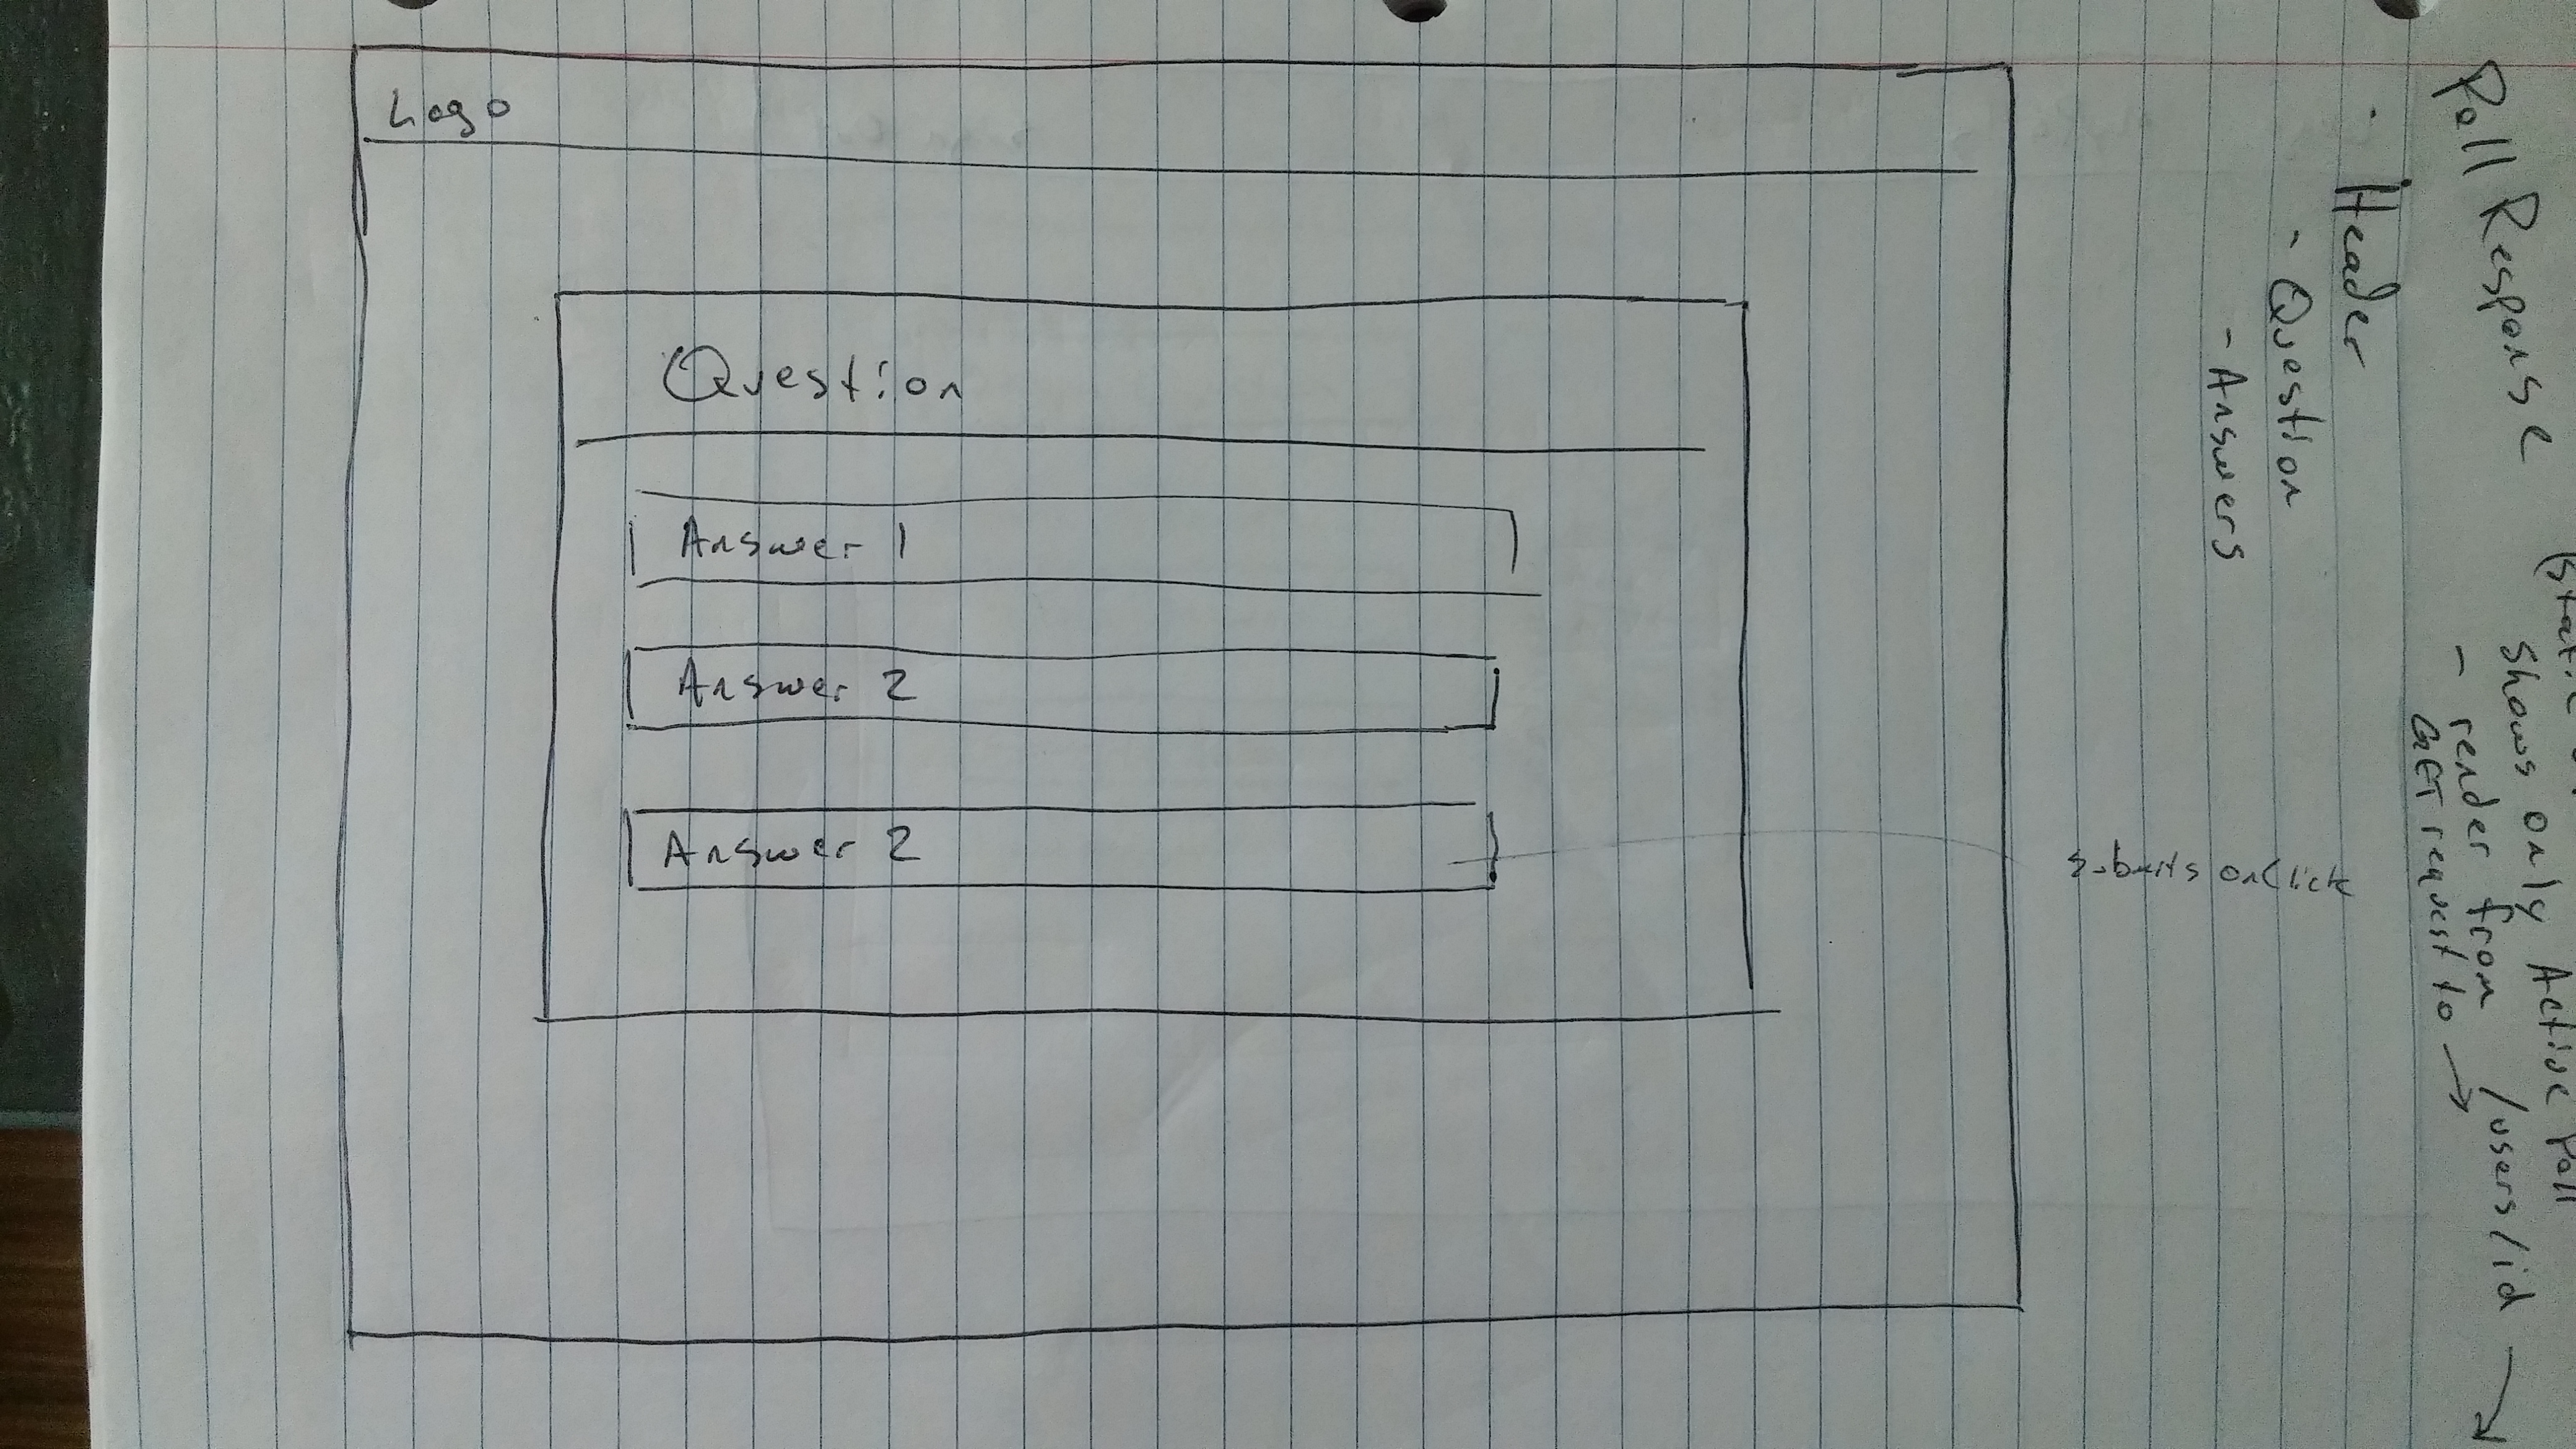 Logo
Question
Answer 1
Answer 2
Answer 2
submits onClick
Poll Response
· Header
- Question
- Answers
(static
shows only Active Poll
- render from /users/id →
GET request to →